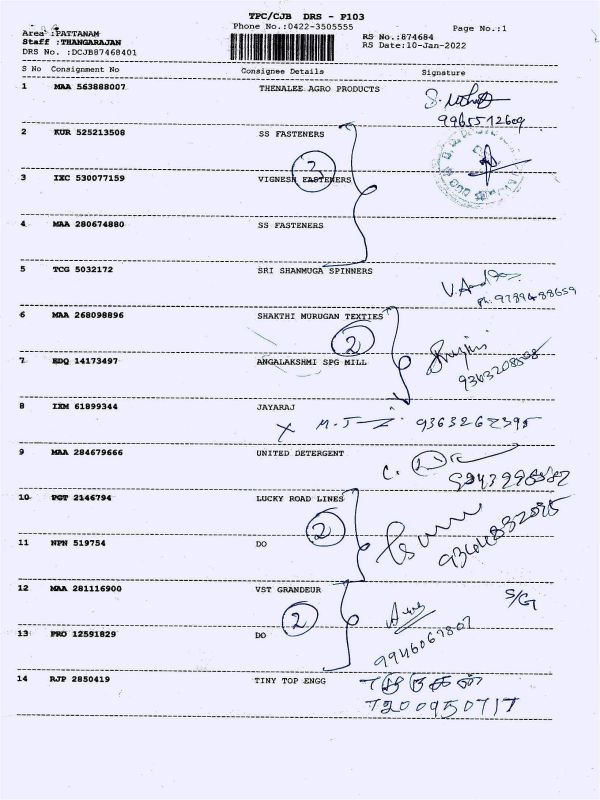 TPC/CJB DRS - P103
Phone No.:0422-3505555
Page No.:1
Area :PATTANAM
Staff :THANGARAJAN
DRS No. :DCJB87468401
RS No.:874684
RS Date:10-Jan-2022
S No Consignment No Consignee Details Signature
1 MAA 563888007 THENALEE AGRO PRODUCTS
9965512609
2 KUR 525213508 SS FASTENERS
3
3 IXC 530077159 VIGNESH FASTENERS
4 MAA 280674880 SS FASTENERS
5 TCG 5032172 SRI SHANMUGA SPINNERS
Ph: 9789488659
6 MAA 268098896 SHAKTHI MURUGAN TEXTIES
2
7 EDQ 14173497 ANGALAKSHMI SPG MILL
8 IXM 61899344 JAYARAJ
X M.J 9363262395
9 MAA 284679666 UNITED DETERGENT
C.
10 PGT 2146794 LUCKY ROAD LINES
2
11 NPN 519754 DO
12 MAA 281116900 VST GRANDEUR
S/G
2
13 PRO 12591829 DO
9946067807
14 RJP 2850419 TINY TOP ENGG
7200950717